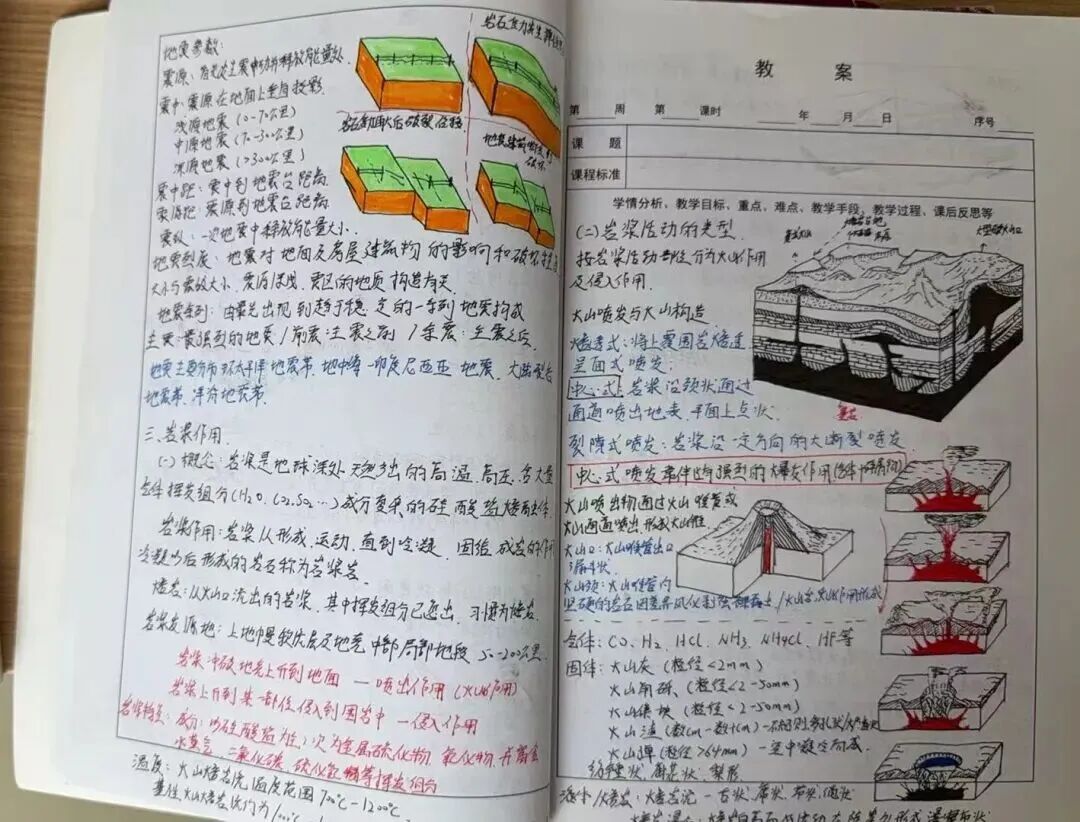 地震参数：
震源：首先发生震动并释放能量处
震中：震源在地面上垂直投影
浅源地震（0-70公里）
中源地震（70-300公里）
深源地震（>300公里）
震中距：震中到地震台距离
震源距：震源到地震台距离
震级：一次地震中释放能量大小
地震烈度：地震对地面及房屋建筑物的影响和破坏
大小与震级大小、震源深浅、震区的地质构造有关
地震序列：由最先出现到趋于稳定的一系列地震构成
主震：最强烈的地震/前震：主震之前/余震：主震之后
地震主要分布：环太平洋地震带、地中海-印度尼西亚地震、大陆裂谷
地震带、洋脊地震带
三、岩浆作用
（一）概念：岩浆是地球深处天然产出的高温、高压、含大量
气体挥发组分（H2O、CO2、SO2…）成分复杂的硅酸盐熔融体
岩浆作用：岩浆从形成、运动、直到冷凝、固结成岩的作用
冷凝以后形成的岩石称为岩浆岩
熔岩：从火山口流出的岩浆，其中挥发组分已逸出，习惯为熔岩
岩浆发源地：上地幔软流层及地壳中部局部地段 50-200公里
岩浆冲破地壳上升到地面—喷出作用（火山作用）
岩浆上升到某一部位侵入到围岩中—侵入作用
成分：以硅酸盐为主，次为金属硫化物、氧化物，并富含
水蒸气、二氧化碳、硫化氢等挥发组分
温度：火山熔岩流温度范围700℃-1200℃
教 案
第 周 第 课时 年 月 日 序号
课 题
课程标准
学情分析、教学目标、重点、难点、教学手段、教学过程、课后反思等
（二）岩浆活动的类型
按岩浆活动部位分为火山作用
及侵入作用
火山喷发与火山构造
熔透式：将上覆围岩熔透
呈面式喷发
中心式：岩浆沿颈状通过
通道喷出地表 平面上点状
裂隙式喷发：岩浆沿一定方向的大断裂喷发
中心式喷发常伴这强烈的爆发作用
火山喷出物通过火山喉管或
火山通道喷出形成火山锥
火山口：火山喉管出口
火山颈：火山喉管内
气体：CO、H2、HCl、NH3、NH4Cl、HF等
固体：火山灰（粒径<2mm）
火山角砾（粒径<2-50mm）
火山集块（粒径<2-50mm）
火山渣（数cm-数十cm）
火山弹（粒径>64mm）—空中凝固而成
纺锤状、扁芯状、梨形